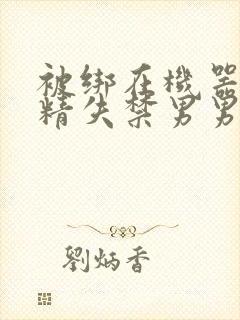 被绑在機器
精失禁男男
劉炳香